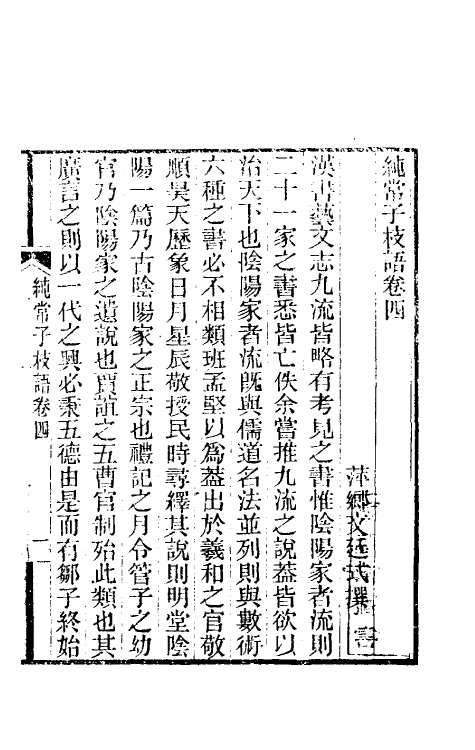 純常子枝語卷四
萍鄉文廷式撰
漢書藝文志九流皆略有考見之書惟陰陽家者流則
二十一家之書悉皆亡佚余嘗推九流之說蓋皆欲以
治天下也陰陽家者流既與儒道名法並列則與數術
六種之書必不相類班孟堅以為蓋出於羲和之官敬
順昊天歷象日月星辰敬授民時尋繹其說則明堂陰
陽一篇乃古陰陽家之正宗也禮記之月令管子之幼
官乃陰陽家之遺說也賈誼之五曹官制殆此類也其
廣言之則以一代之興必秉五德由是而有鄒子終始
純常子枝語卷四
一